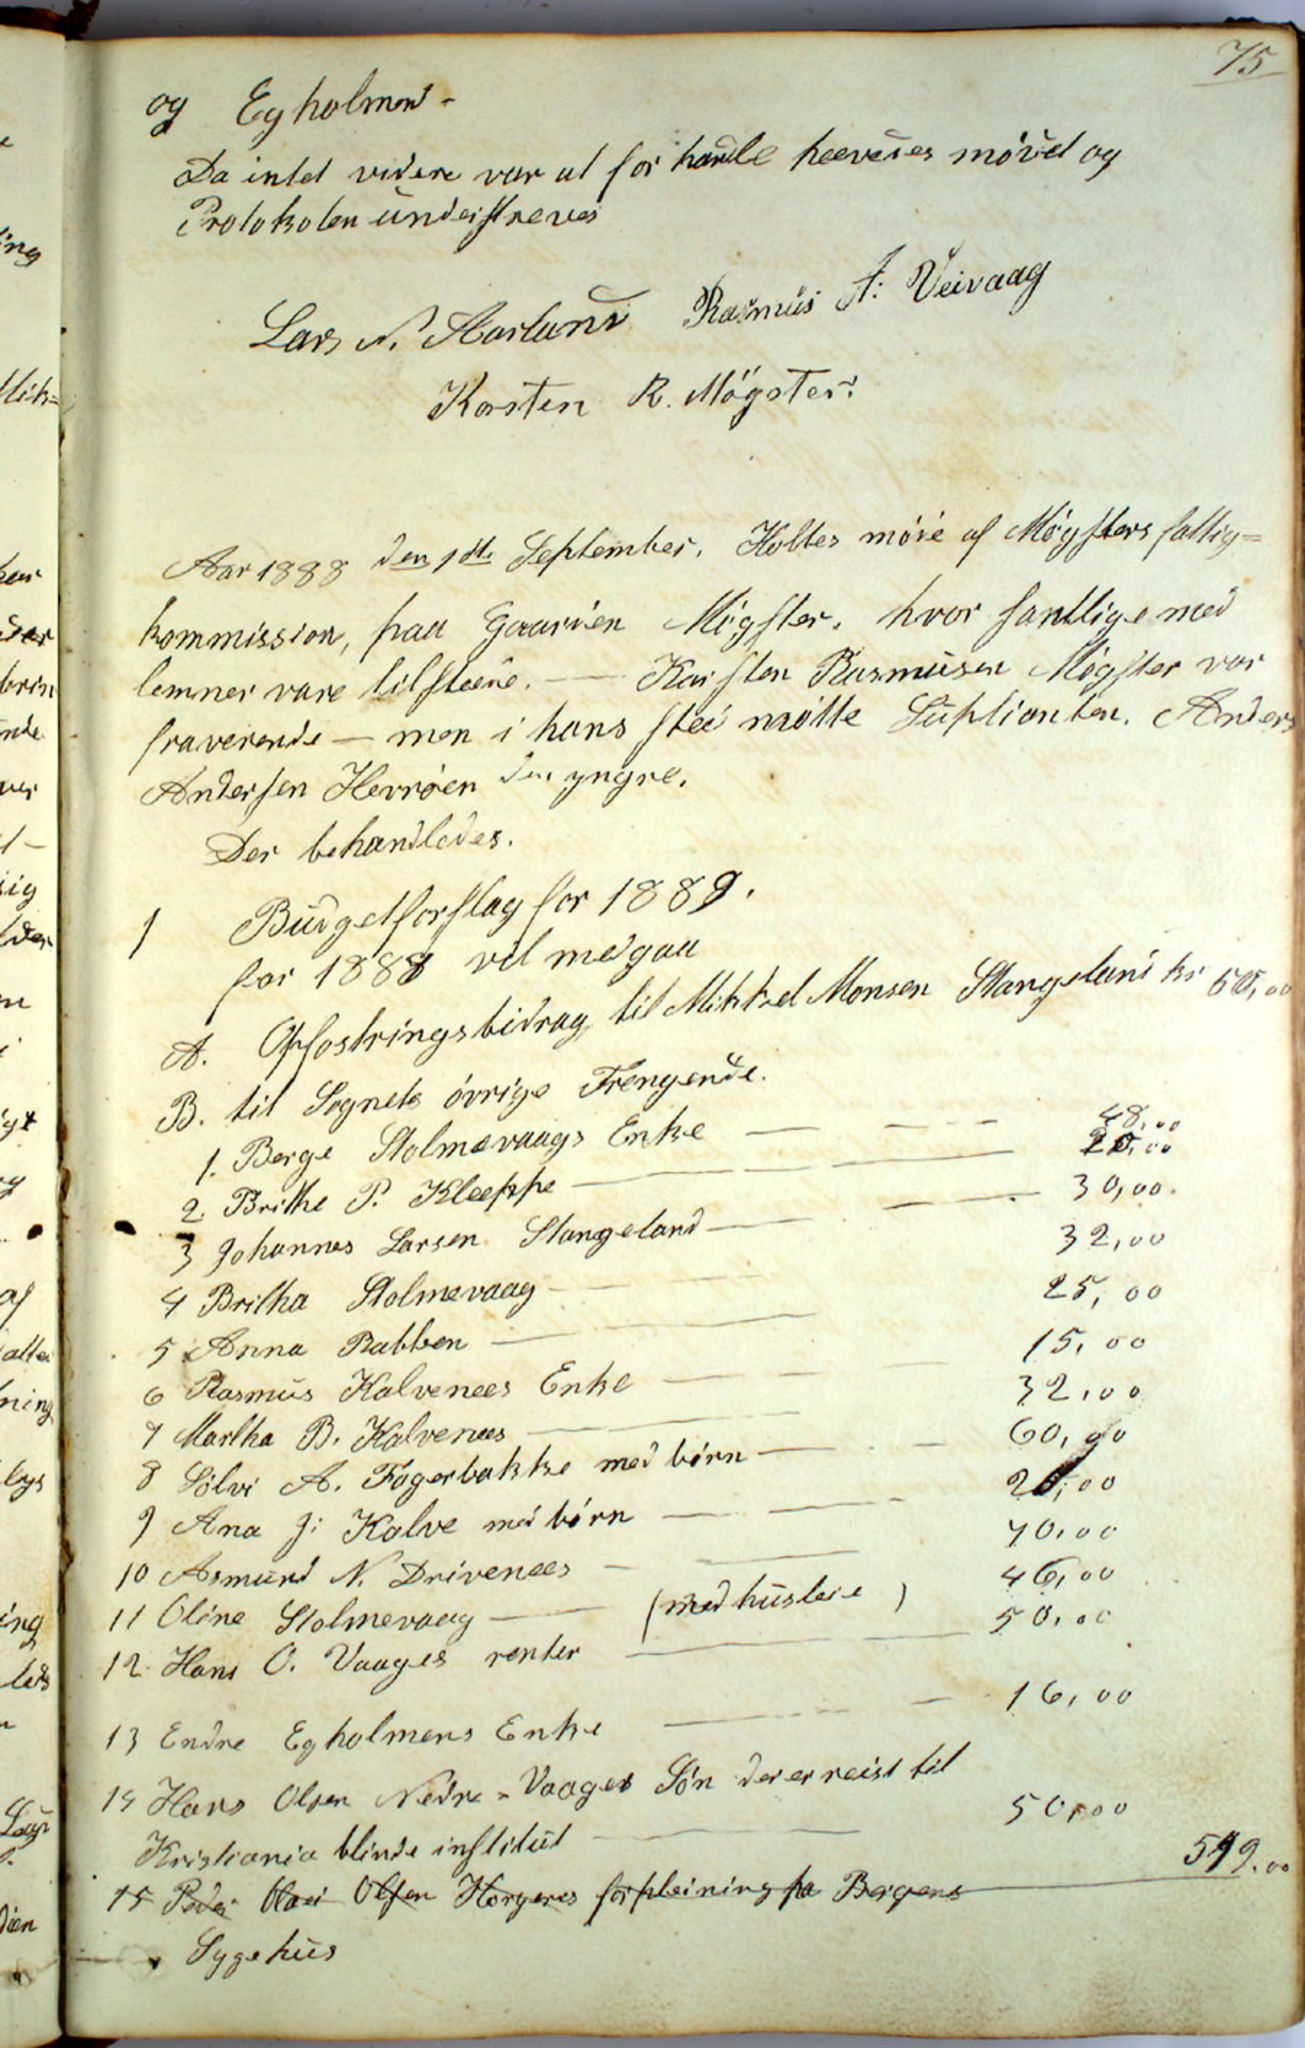 75
og Egholmen -
Da intet videre var at for handle hævedes mødet og
Protokolen underskreves
Lars N. Aarland Rasmus A: Veivaag
Karsten R. Møgster.
Aar 1888 den 1ste September. Holtes møde af Møgsters fattig=
kommission, paa Gaarden Møgster. hvor samtlige med
lemner vare tilstede. — Karsten Rasmusen Møgster var
fraverende — men i hans sted møtte Suplianten. Anders
Andersen Hevrøen den yngre.
Der behandledes.
1 Budgetforslag for 1889.
for 1888 vil medgaa
A. Opfostringsbidrag til Mikkel Monsen Stangeland kr 50,00
B. til Sognets øvrige Trengende.
1. Berge Stolmevaags Enke — 48,00
2. Brithe P. Kleppe — 20,00
3 Johannes Larsen Stangeland — 30,00
4 Britha Stolmevaag — 32,00
5 Anna Rabben — 25,00
6 Rasmus Kalvenes Enke — 15,00
7 Martha B. Kalvenes — 32,00
8 Sølvi A. Fagerbakke med børn — 60,00
9 Ana J: Kalve med børn — 20,00
10 Asmund N. Drivenes — 70,00
11 Oline Stolmevaag — (med husleie) 46,00
12. Hans O. Vaages renter — 50,00
13 Endre Egholmens Enke — 16,00
14 Hans Olsen Nedre-Vaages Søn der er reist til
Kristiania blinde institut — 50,00
15 Peder Olsen Horgenes forpleining pa Bergens — 549.00
Sygehus